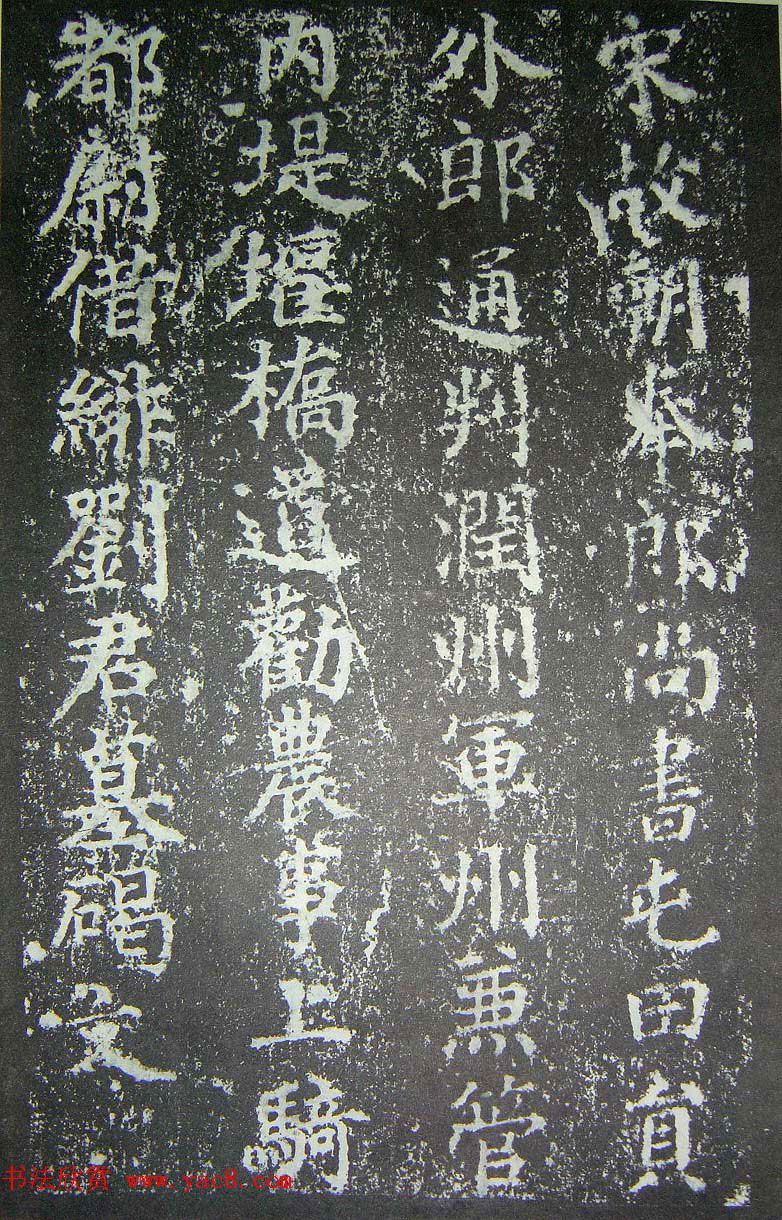 宋故朝奉郎尚書屯田員
外郎通判潤州軍州兼管
内堤堰橋道勸農事上騎
都尉借緋劉君墓碣文
书法欣赏 www.yac8.com